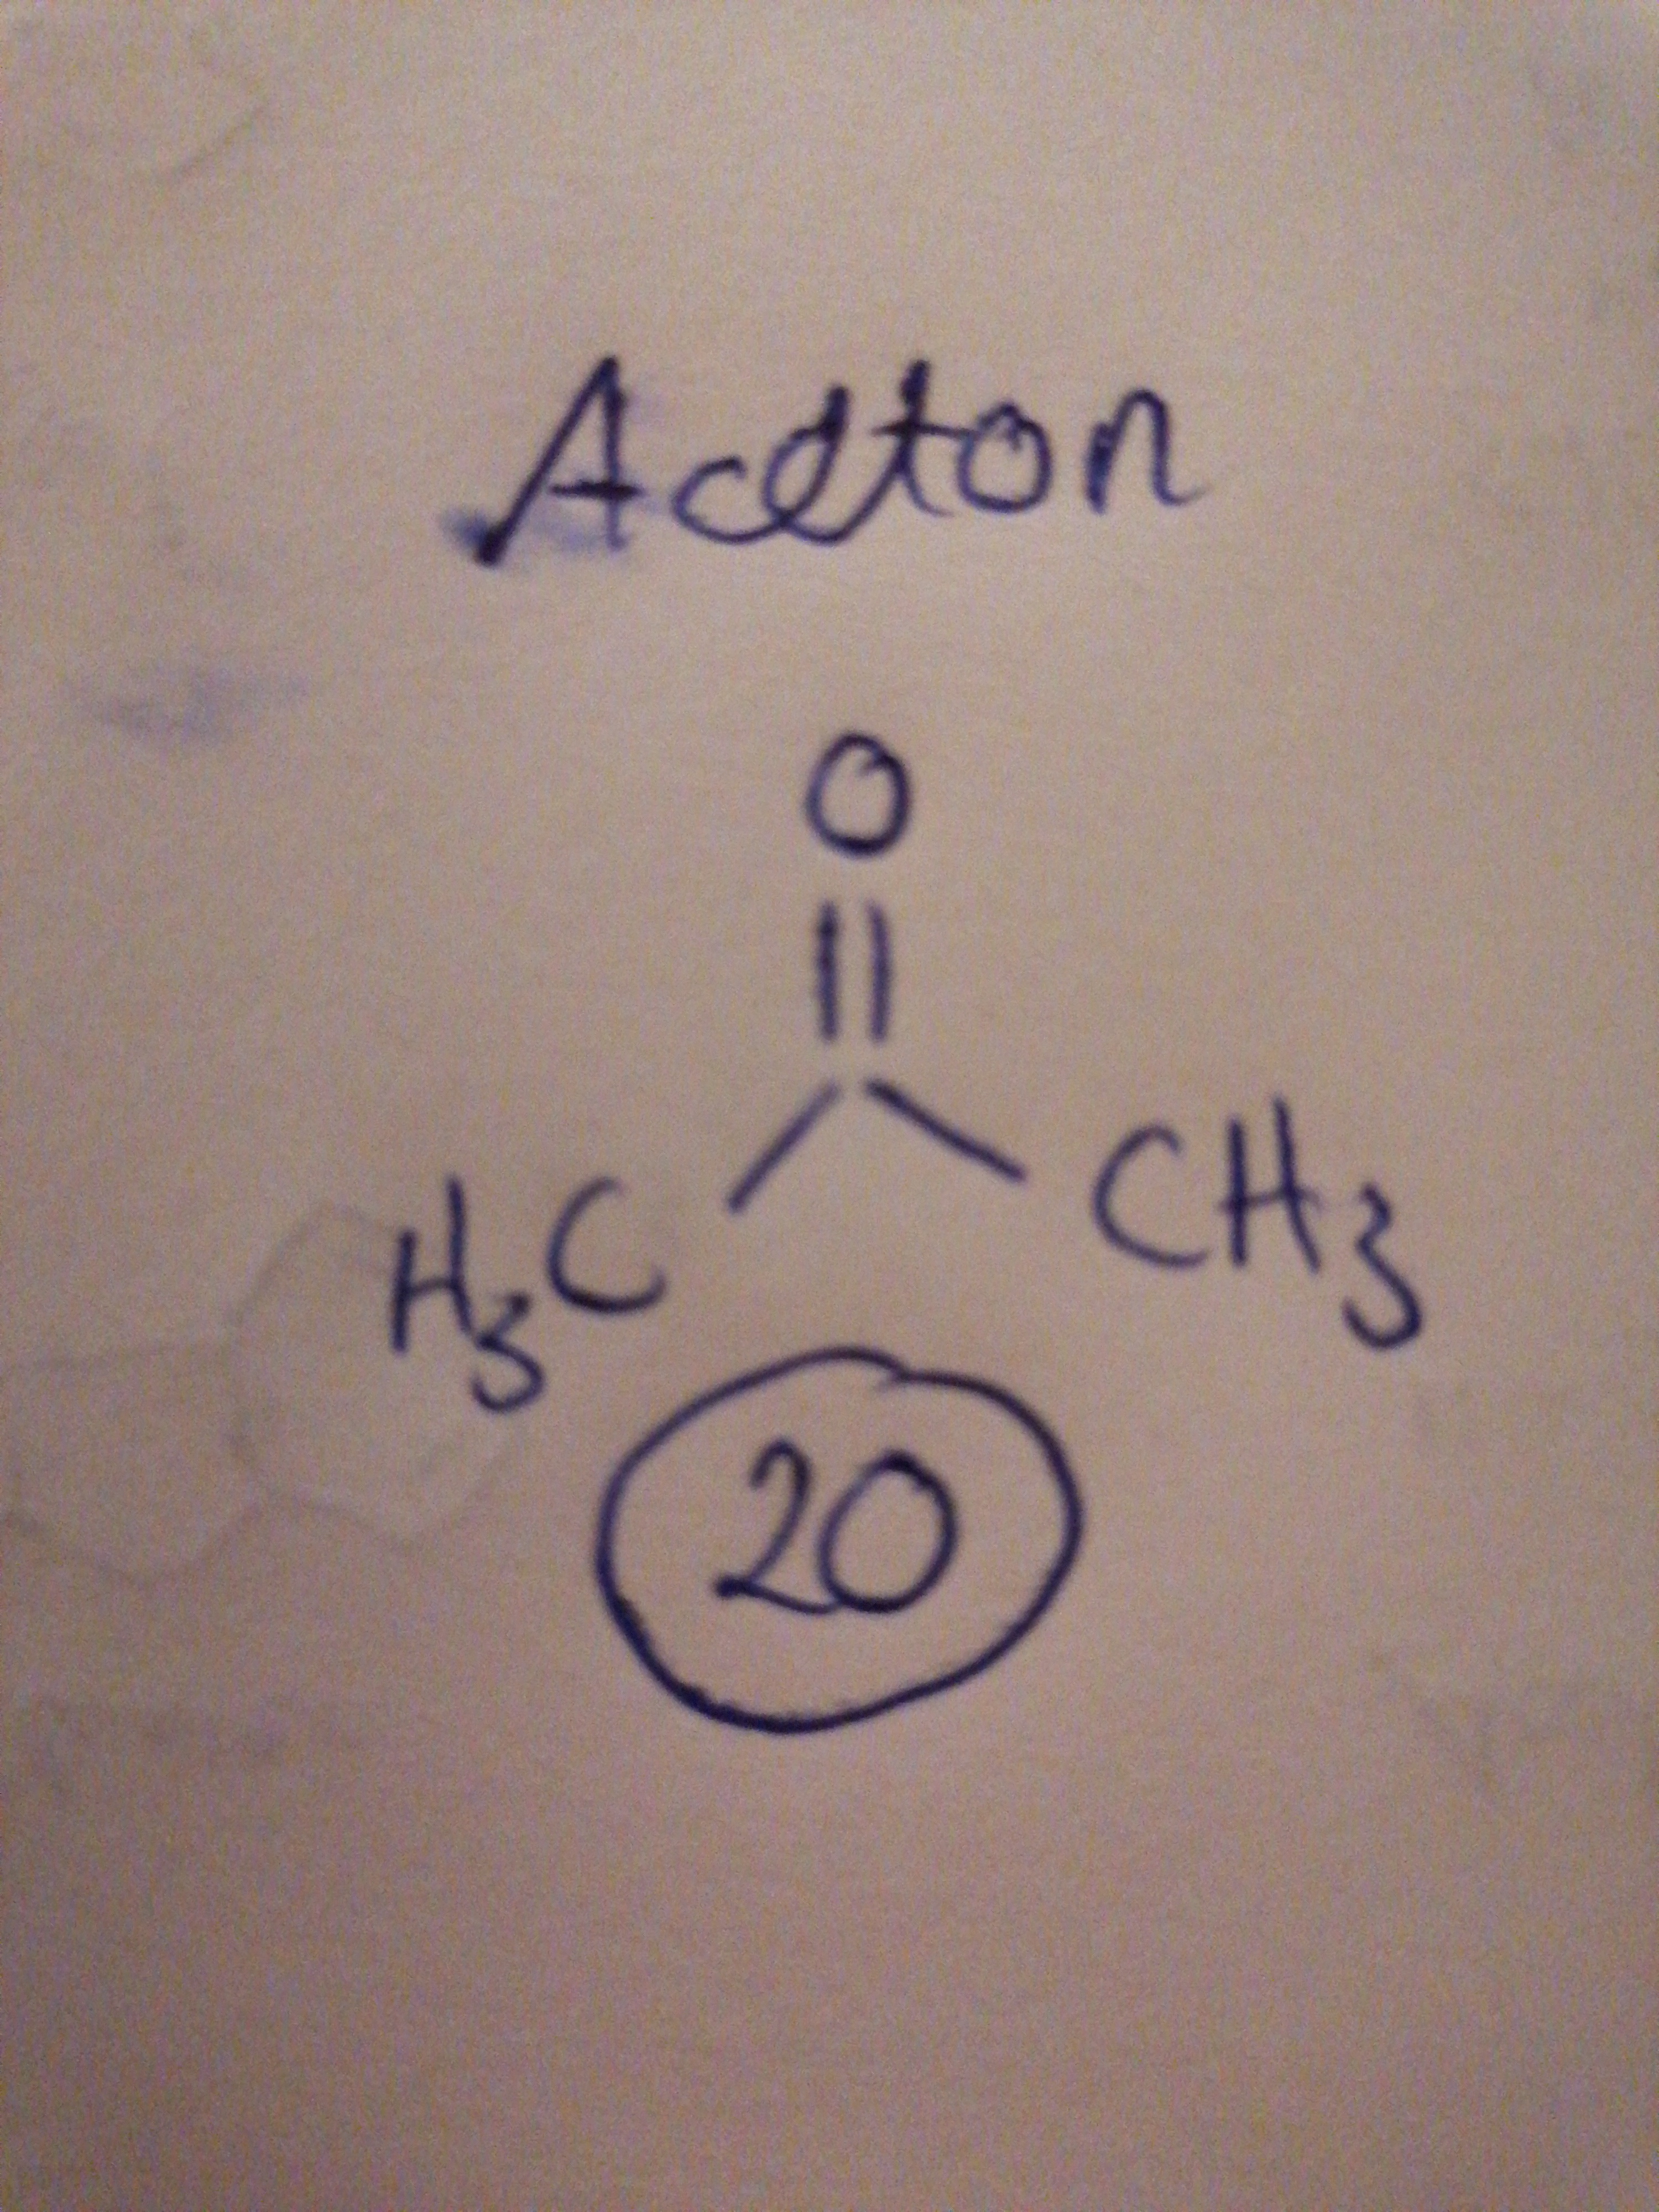 Aceton
O
H3C CH3
20